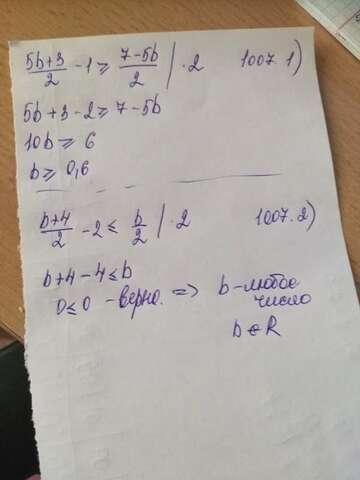 (5b+3)/2 - 1 ⩾ (7-5b)/2 | · 2 1007. 1)
5b + 3 - 2 ⩾ 7 - 5b
10b ⩾ 6
b ⩾ 0,6
(b+4)/2 - 2 ⩽ b/2 | · 2 1007. 2)
b + 4 - 4 ⩽ b
0 ⩽ 0 - верно. => b - любое
число
b ∈ R